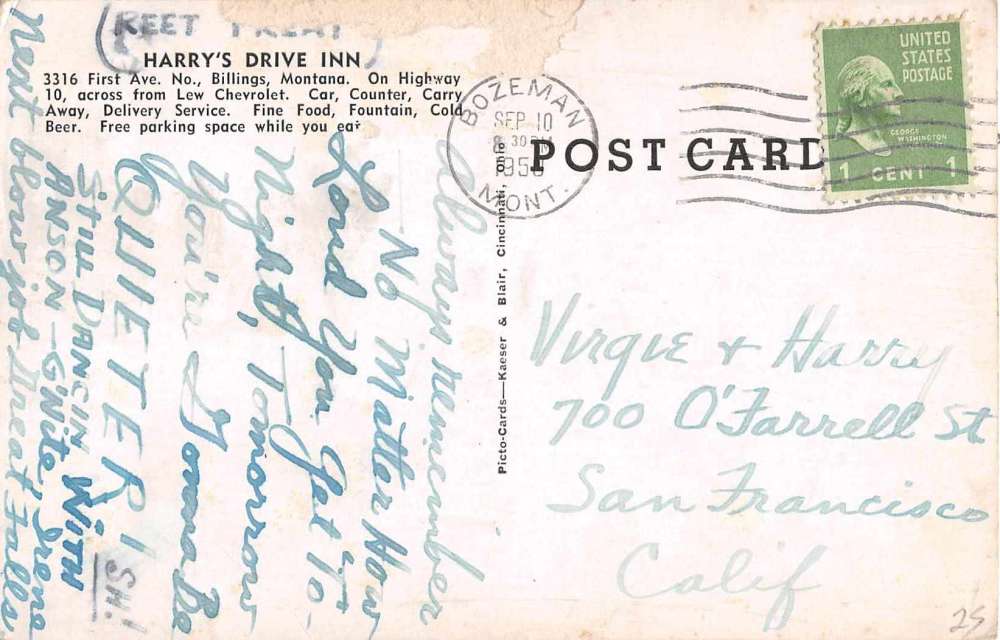 (REET TREAT)
HARRY'S DRIVE INN
3316 First Ave. No., Billings, Montana. On Highway
10, across from Lew Chevrolet. Car, Counter, Carry
Away, Delivery Service. Fine Food, Fountain, Cold
Beer. Free parking space while you eat
Always remember
No Matter How
Loud You Get To-
Night, Tomorrow
You're Gonna Be
QUIETER!
SH!
STILL DANCIN WITH
ANSON - G'Nite! Irene
Next blow job Great Falls
Picto-Cards—Kaeser & Blair, Cincinnati, Ohio
BOZEMAN
SEP 10
8 30 PM
MONT.
POST CARD
UNITED
STATES
POSTAGE
GEORGE
WASHINGTON
1 CENT 1
Virgie + Harry
700 O'Farrell St
San Francisco
Calif
25